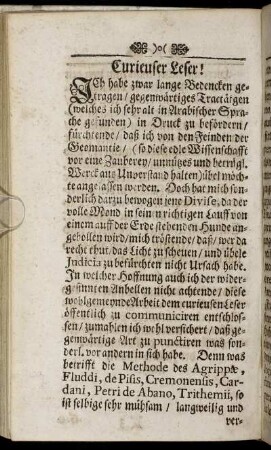 )o(
Curieuser Leser!
JCh habe zwar lange Bedencken ge-
tragen / gegenwärtiges Tractätgen
(welches ich sehr alt in Arabischer Spra-
che gefunden) in Druck zu befördern /
fürchtende / daß ich von den Feinden der
Geomantie / (so diese edle Wissenschafft
vor eine Zauberey / unnützes und betriegl.
Werck aus Unverstand halten) übel möch-
te angelassen werden. Doch hat mich son-
derlich darzu bewogen jene Divise, da der
volle Mond in seinem richtigen Lauff von
einem auff der Erde stehenden Hunde an-
gebellen wird / mich tröstende / daß / wer da
recht thut / das Licht zu scheuen / und übele
Judicia zu befürchten nicht Ursach habe.
In welcher Hoffnung auch ich der wider-
gesinnten Anbellen nicht achtende / diese
wohlgemeynde Arbeit dem curieusen Leser
öffentlich zu communiciren entschlos-
sen / zumahlen ich wohl versichert / daß ge-
genwärtige Art zu punctiren was son-
derl. vor andern in sich habe. Denn was
betrifft die Methode des Agrippæ,
Fluddi, de Pisis, Cremonensis, Car-
dani, Petri de Abano, Trithemii, so
ist selbige sehr mühsam / langweilig und
ver-